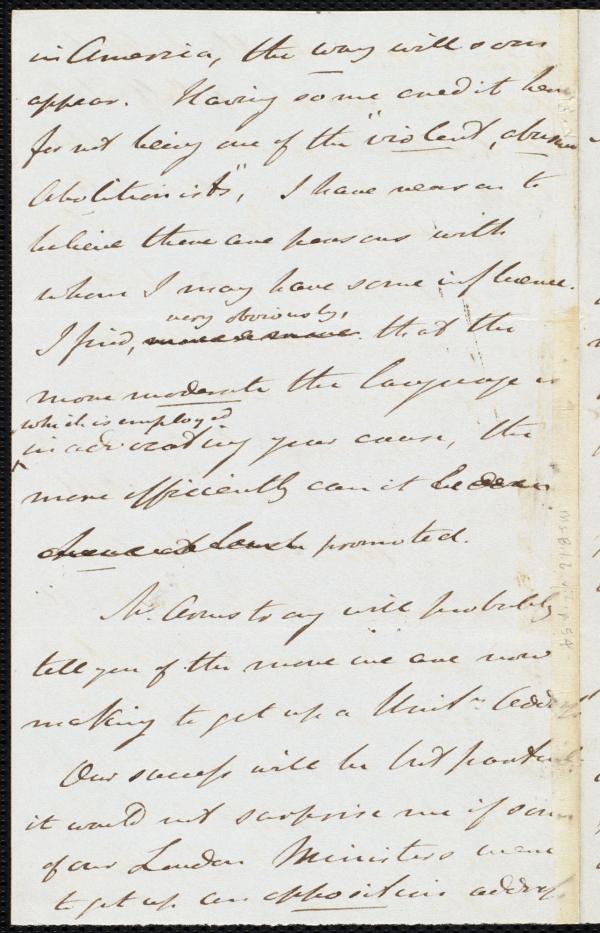 in America, the way will soon
appear. Having some credit here
for not being one of the "violent, abusive
Abolitionists", I have reason to
believe there are persons with
whom I may have some influence.
very obviously,
I find, that the
more moderate the language is
which is employed
in advocating your cause, the
more efficiently can it be
promoted.
Mr. Armstrong will probably
tell you of the move we are now
making to get up a Unitn. Address
Our success will be but partial.
it would not surprise me if some
of our London Ministers were
to get up an opposition address